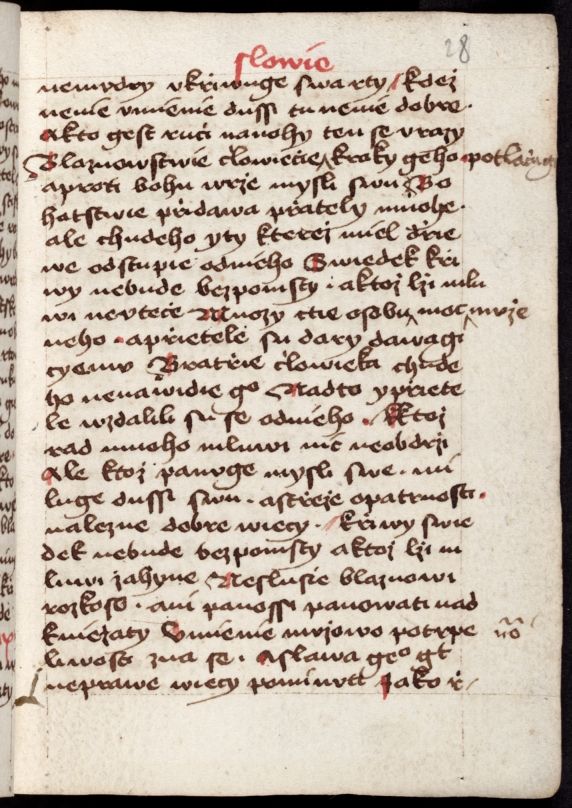 slowie
28
nemudry vkřiwuge swa rty / kdež
nenie vmienie dussi tu nenie dobre ·
Akto gest ruči nanohy ten se vrazy
Blaznowstwie člowiecie kroky geho · potlačuge
aproti bohu wrże mysli swu Bo
hatstwie přidawa prately mnohe ·
ale chudeho yty kterež miel dřie
we odstupie odnieho Swiedek kři
wy nebude bezpomsty · aktož lži mlu
wi nevteče Mnozy ctie osobu moc mrże
neho · aprietele su dary dawagi
cyemu Bratřie člowieka chude
ho nenawidie go Nadto ypriete
le wzdalili su se odnieho · Ktož
rad mnoho mluwi nic neobdrži
Ale ktož panuge mysli swe · mi
luge dussi swu · astřeże opatrnosti ·
nalezne dobre wiecy · křiwy swie
dek nebude bezpomsty aktož lži m
luwi zahyne Neslusie blaznowi
rozkoss · ani panossi panowati nad
kniežaty Vmienie mużowo potrpe
liwost zna se · Aslawa geo gt
neprawe wiecy pominutt Jako ř /